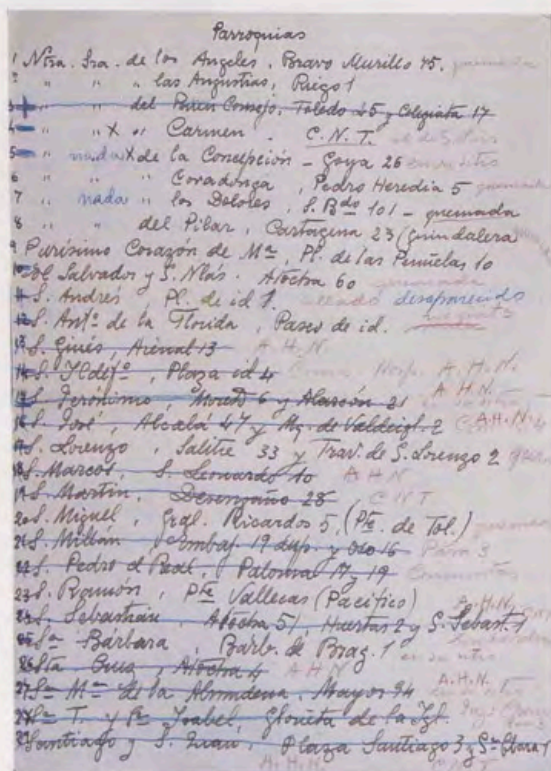 Parroquias
1 Ntra. Sra. de los Angeles, Bravo Murillo 45. quemada
2 " " " las Angustias, Riego 1
3 " " del Buen Consejo. Toledo 45 y Colegiata 17
4 " " X " Carmen. C.N.T.
5 " nada X de la Concepción - Goya 26 en su sitio
6 " " " Covadonga, Pedro Heredia 5 quemada
7 " nada " los Dolores, S. Bdo 101 - quemada
8 " " del Pilar, Cartagena 23 (Guindalera
9 Purísimo Corazón de Mª, Pl. de las Peñuelas 10
10 El Salvador y S. Nlás. Atocha 60 quemada
11 S. Andrés, Pl. de id 1. desaparecido
12 S. Antº de la Florida, Paseo de id.
13 S. Ginés, Arenal 13 A.H.N.
14 S. Ildefº, Plaza id 4 A.H.N.
15 S. Jerónimo, Moreto 6 y Alarcón 21 A.H.N.
16 S. José, Alcalá 47 y Mq. de Valdeigl. 2 A.H.N.
17 S. Lorenzo, Salitre 33 y Trav. de S. Lorenzo 2
18 S. Marcos, S. Leonardo 10 A.H.N
19 S. Martín, Desengaño 28 C.N.T
20 S. Miguel, Gral. Ricardos 5. (Pte. de Tol.) quemada
21 S. Millán, Embaj. 19 dup. y Oso 16
22 S. Pedro el Real, Paloma 17 y 19
23 S. Ramón, Pte Vallecas (Pacífico)
24 S. Sebastián Atocha 51, Huertas 2 y S. Sebast. 1 A.H.N.
25 Sª Bárbara, Bárb. de Brag. 1 en su sitio
26 Sta Cruz, Atocha 4 A.H.N
27 Sª Mª de la Almudena, Mayor 94 A.H.N.
28 Sª T. y Sª Isabel, Glorieta de la Igl.
29 Santiago y S. Juan, Plaza Santiago 3 y Sª Clara 1
A.H.N. C.N.T